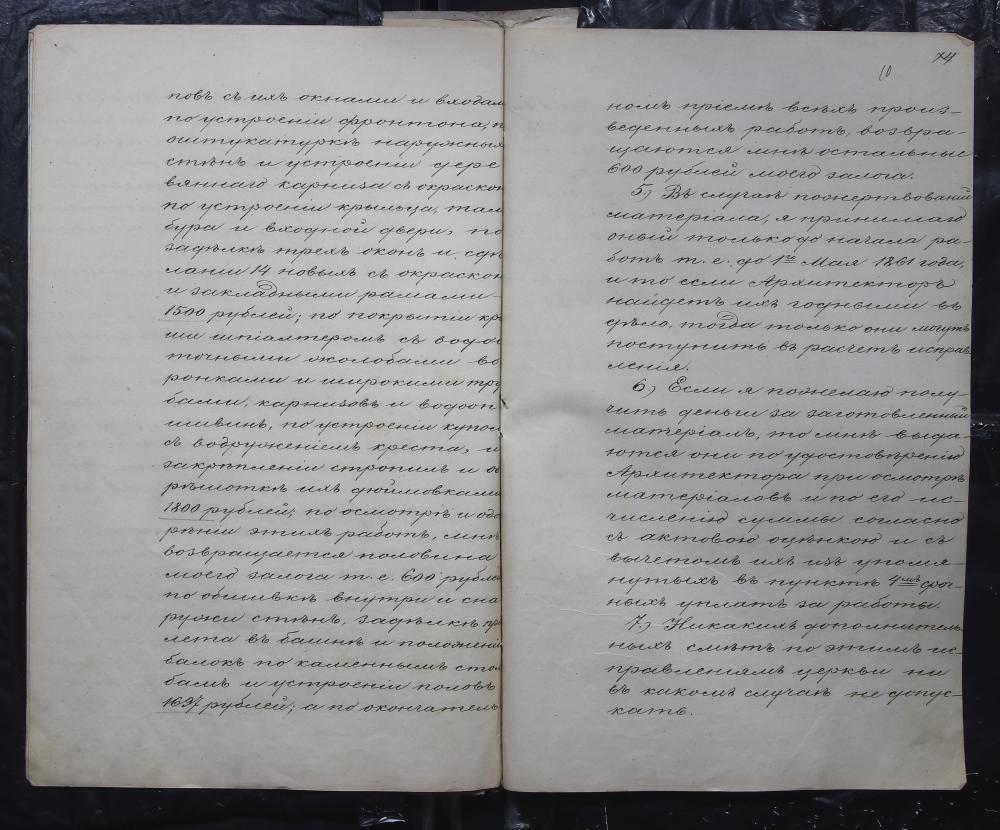 повъ съ ихъ окнами и входам
по устроеніи фронтона, п
оштукатуркѣ наружных
стѣнъ и устроеніи дере
вяннаго карниза съ окраскою
по устроеніи крыльца, там
бура и входной двери, по
задѣлкѣ трехъ оконъ и сдѣ
ланіи 14 новыхъ съ окраскою
и закладными рамами –
1500 рублей; по покрытіи кры
ши шпіалтеромъ съ водос
точными жолобами во
ронками и широкими тру
бами, карнизовъ и водоот
шивинъ, по устроеніи купол
съ водруженіемъ креста, и
закрѣпленіи стропилъ и об
рѣшоткѣ ихъ дюймовками
1800 рублей; по осмотрѣ и одоб
рѣніи этихъ работъ, мнѣ
возвращается половина
моего залога т. е. 600 рублей
по обшивкѣ внутри и сна
ружи стѣнъ, задѣлкѣ про
лета въ башнѣ и положеніи
балокъ по каменнымъ стол
бамъ и устроеніи половъ
1697 рублей; а по окончатель
74
10
номъ пріемѣ всѣхъ произ-
веденныхъ работъ, возвра-
щаются мнѣ остальные
600 рублей моего залога.
5.) Въ случаѣ пожертвованій
матеріала, я принимаю
оный только до начала ра-
ботъ т. е. до 1го Мая 1861 года,
и то если Архитекторъ
найдетъ ихъ годными въ
дѣло, тогда только они могутъ
поступить въ расчетъ исправ
ленія.
6.) Если я пожелаю полу-
чить деньги за заготовленный
матеріалъ, то мнѣ выда-
ются они по удостовѣренію
Архитектора при осмотрѣ
матеріаловъ и по его ис-
численію суммы согласно
съ актовою оцѣнкою и съ
вычетомъ ихъ изъ упомя-
нутыхъ въ пунктѣ 4мъ сроч-
ныхъ уплатъ за работы.
7.) Никакихъ дополнитель
ныхъ смѣтъ по этимъ ис-
правленіямъ церкви ни
въ какомъ случаѣ не допус-
кать.